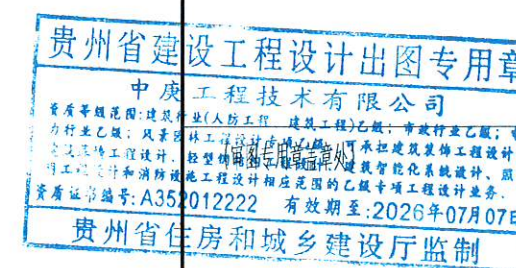 贵州省建设工程设计出图专用章
中庚工程技术有限公司
资质等级范围:建筑行业(人防工程 建筑工程)乙级; 市政行业乙级;
力行业乙级; 风景园林工程设计专项乙级; 可承担建筑装饰工程设计
工程设计、轻型钢 建筑智能化系统设计、照
明工程设计和消防设施工程设计相应范围的乙级专项工程设计业务.
【审图专用章盖章处】
资质证书编号:A352012222 有效期至:2026年07月07日
贵州省住房和城乡建设厅监制